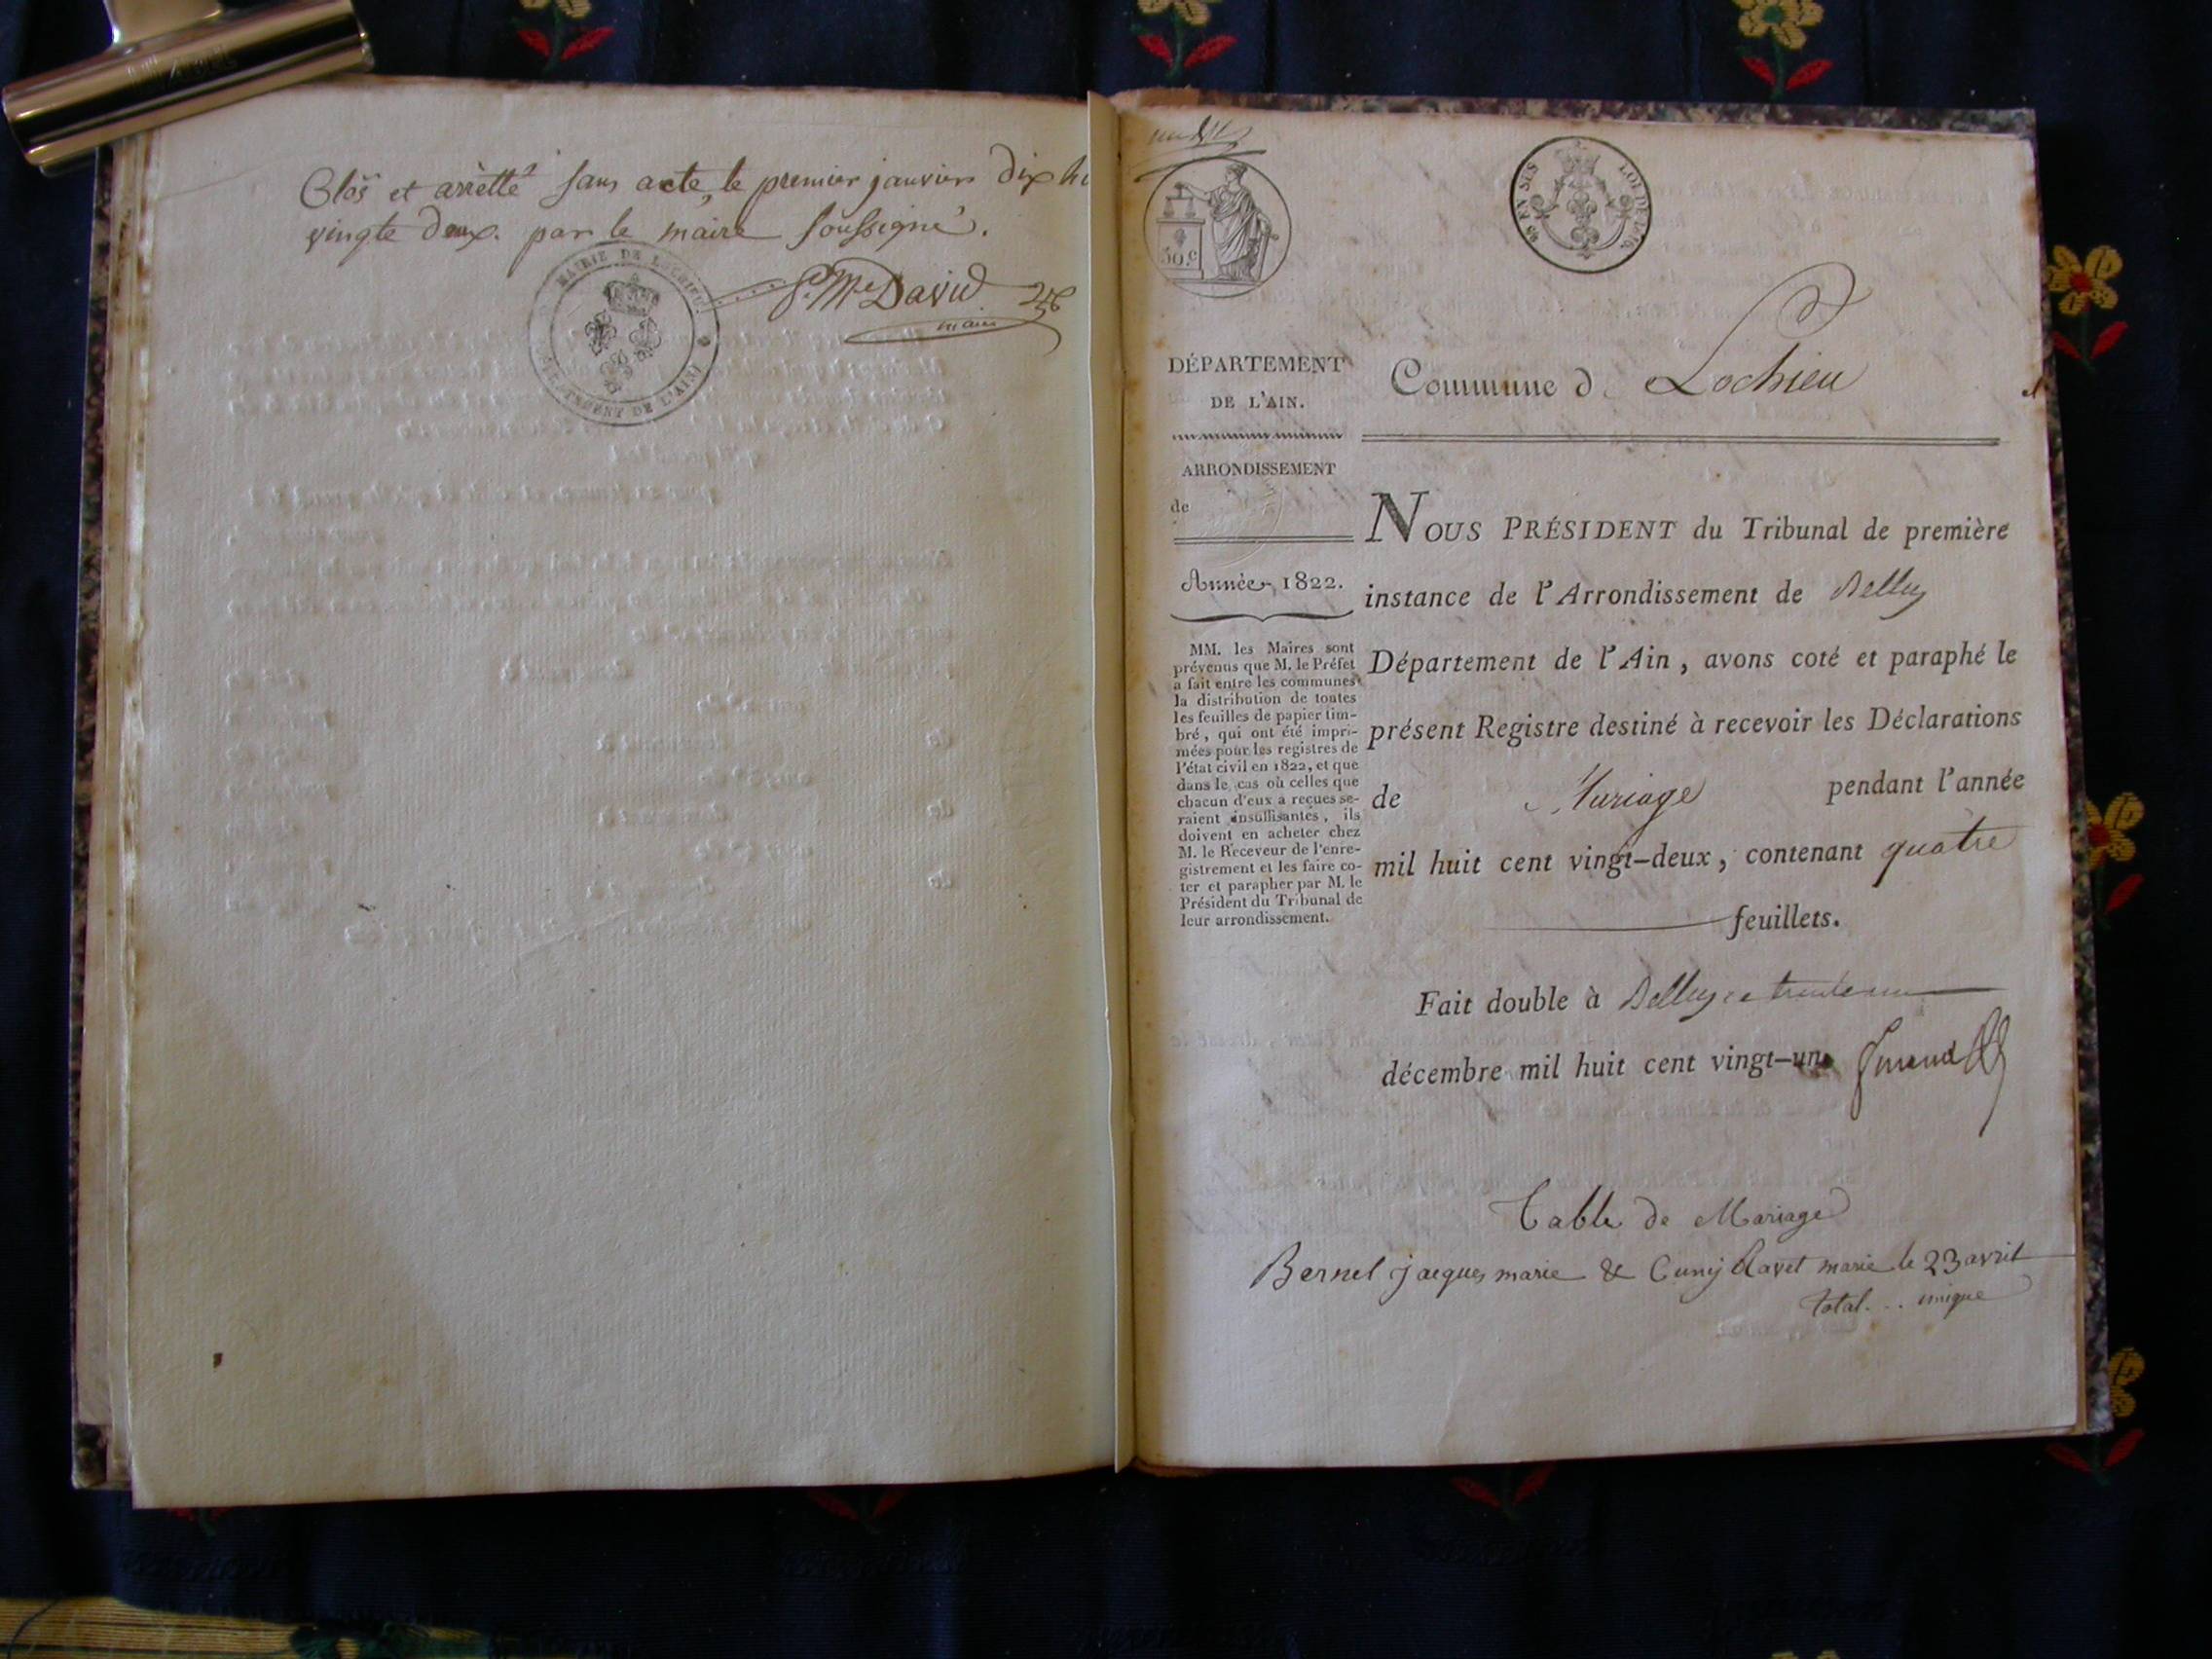 Clos et arretté sans acte, le premier janvier dix hu
vingte deux. par le maire soussigné.
MAIRIE DE LOCHIEU
DÉPARTEMENT DE L'AIN
David
maire
50.c
LOI DE 1816.
DÉPARTEMENT
DE L'AIN.
Commune d Lochieu
ARRONDISSEMENT
de
Année 1822.
MM. les Maires sont
prévenus que M. le Préfet
a fait entre les communes
la distribution de toutes
les feuilles de papier tim-
bré, qui ont été impri-
mées pour les registres de
l'état civil en 1822, et que
dans le cas où celles que
chacun d'eux a reçues se-
raient insuffisantes, ils
doivent en acheter chez
M. le Receveur de l'enre-
gistrement et les faire co-
ter et parapher par M. le
Président du Tribunal de
leur arrondissement.
NOUS PRÉSIDENT du Tribunal de première
instance de l'Arrondissement de Belley
Département de l'Ain, avons coté et paraphé le
présent Registre destiné à recevoir les Déclarations
de Mariage pendant l'année
mil huit cent vingt-deux, contenant quatre
feuillets.
Fait double à Belley ce trente un
décembre mil huit cent vingt-un
Table de Mariage
Bernel jacques marie & Cuny Ravet marie le 23 avril
total... unique